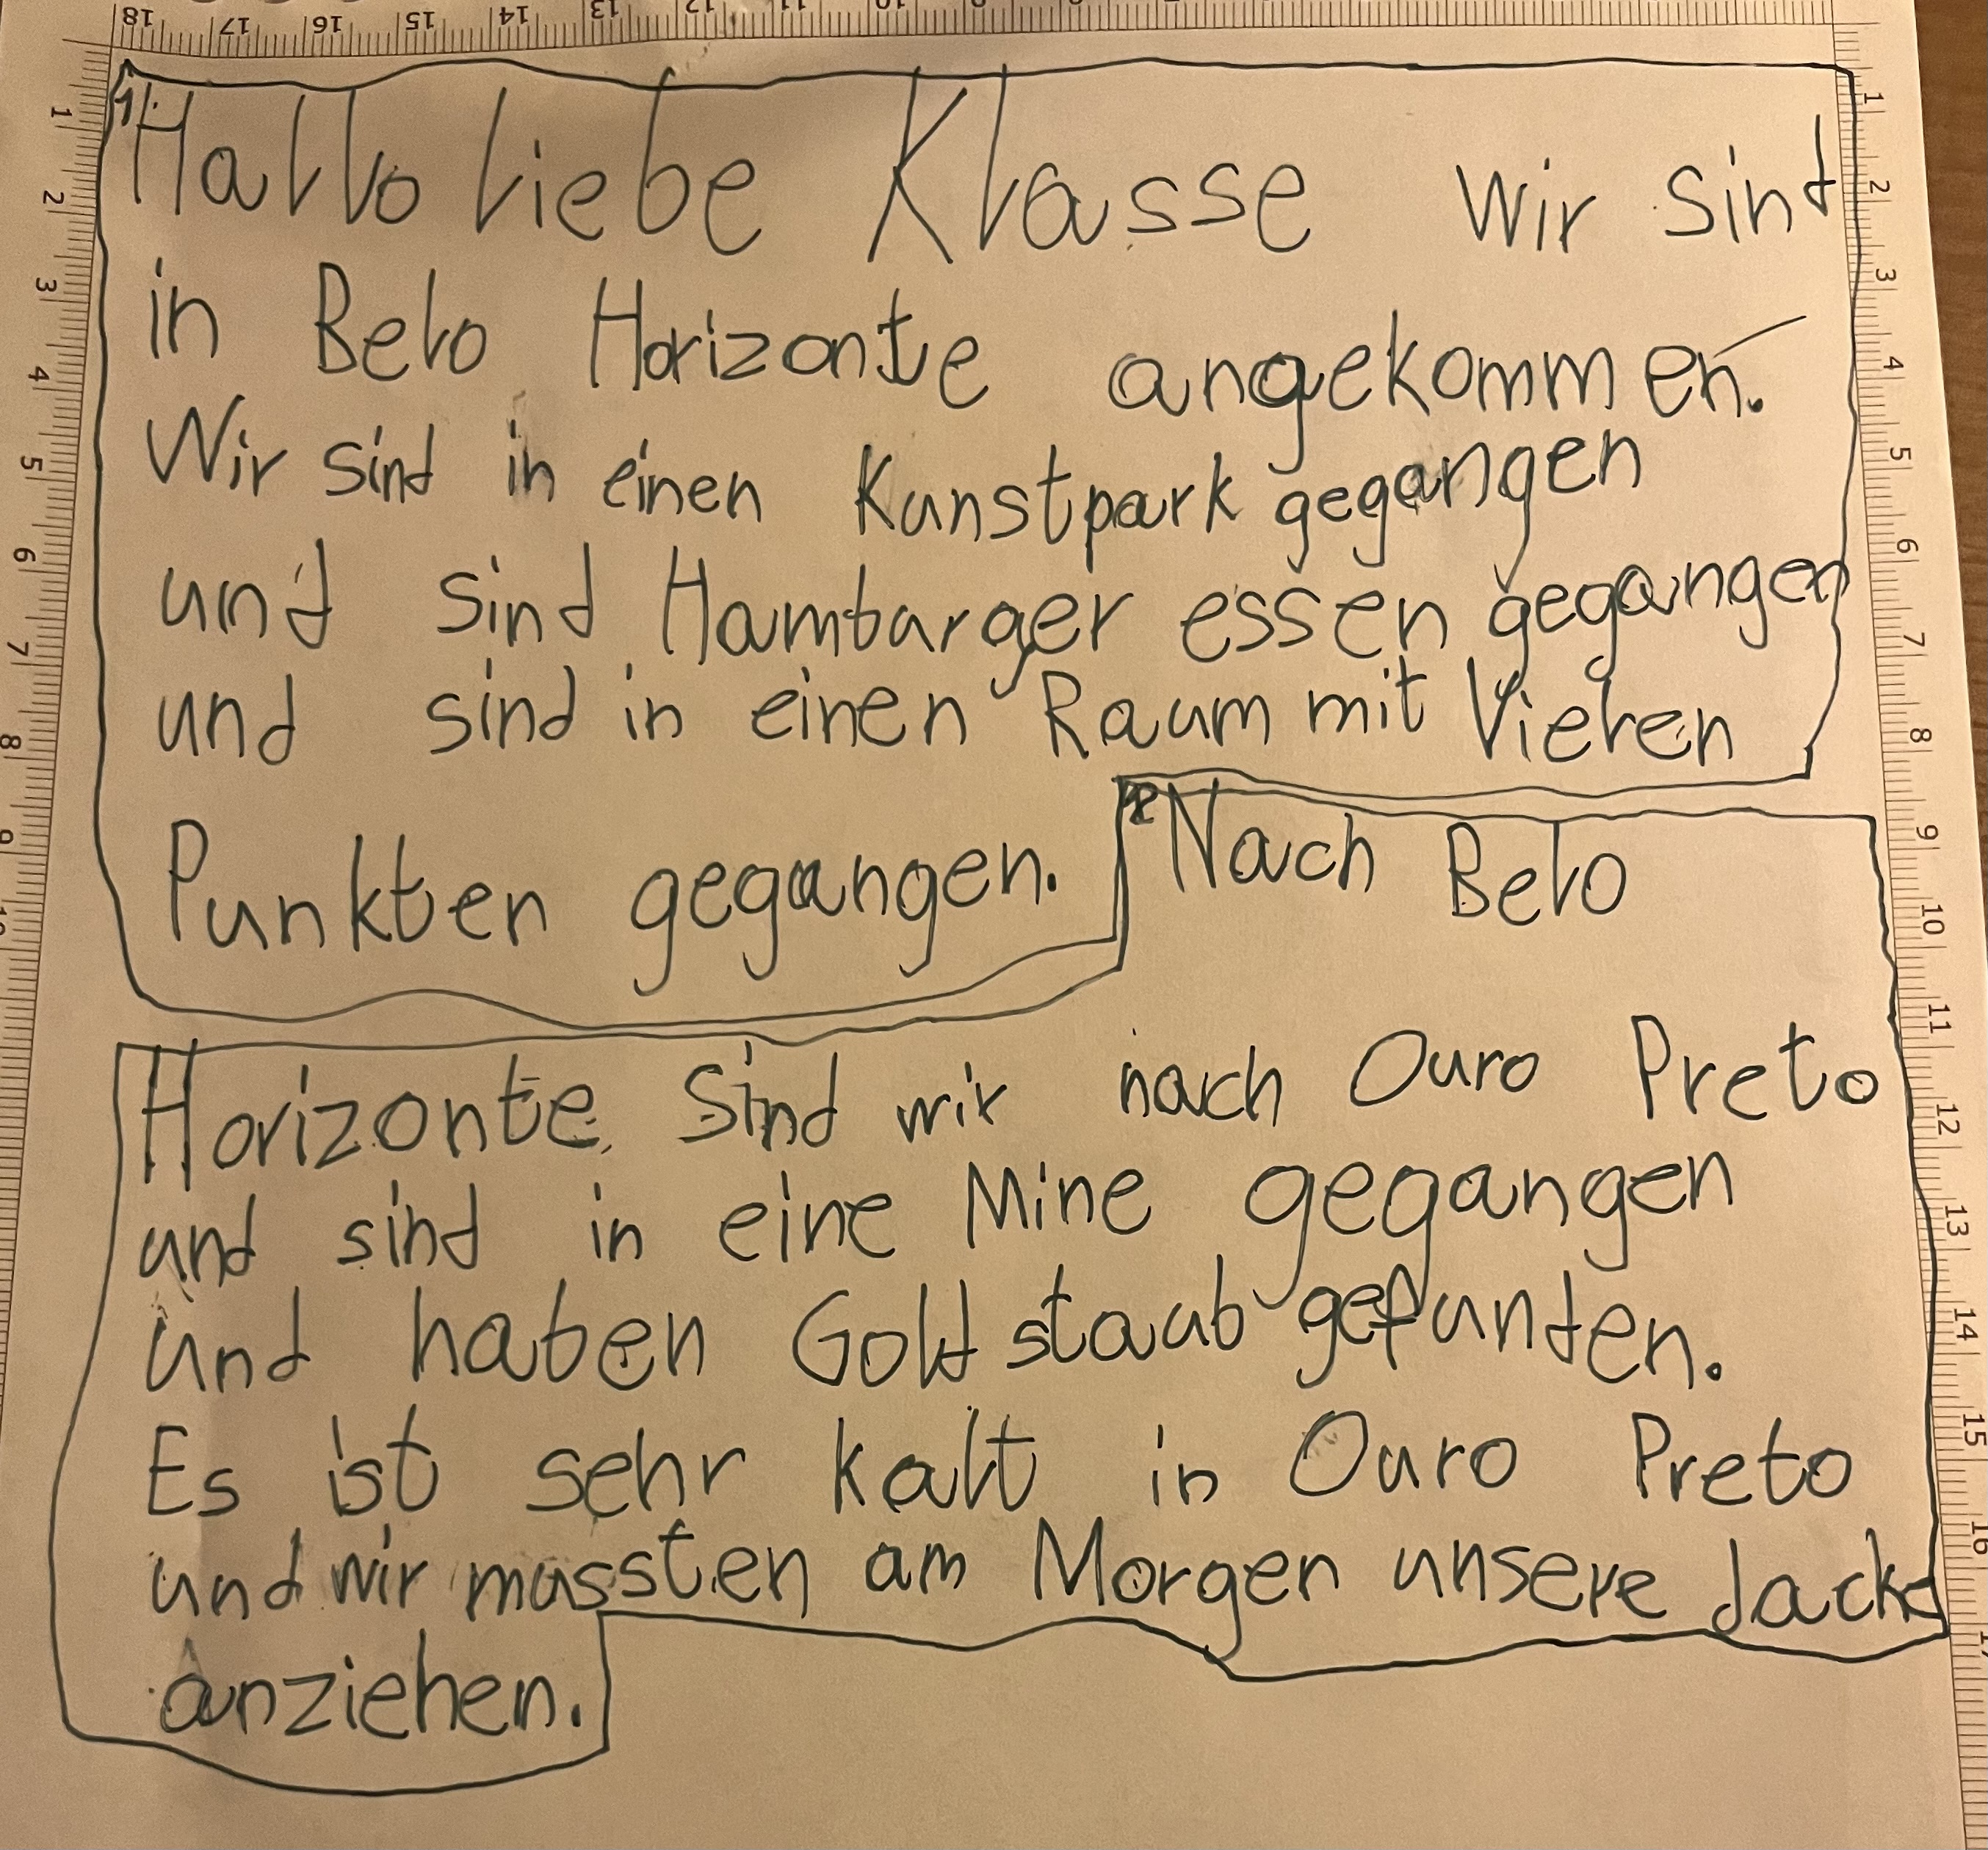 18 17 16 15 14 13 12 11 10
1. Hallo liebe Klasse wir sind
in Belo Horizonte angekommen.
Wir sind in einen Kunstpark gegangen
und sind Hamburger essen gegangen
und sind in einen Raum mit Vielen
Punkten gegangen.
2 Nach Belo
Horizonte sind wir nach Ouro Preto
und sind in eine Mine gegangen
und haben Goldstaub gefunden.
Es ist sehr kalt in Ouro Preto
und wir mussten am Morgen unsere Jacke
anziehen.
1
2
3
4
5
6
7
8
9
1
2
3
4
5
6
7
8
9
10
11
12
13
14
15
16
17